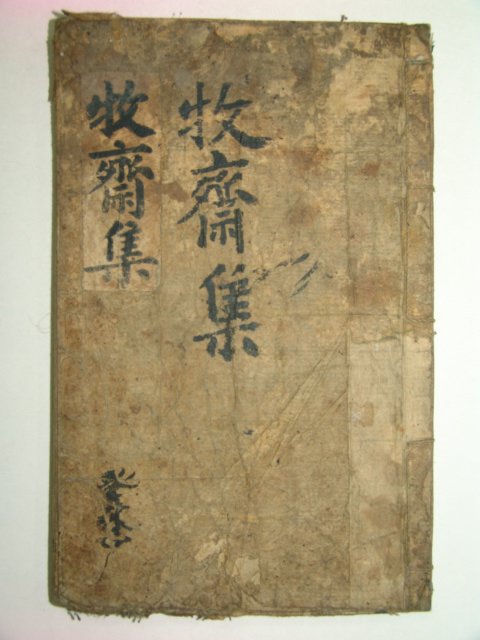 牧齋集
牧齋集